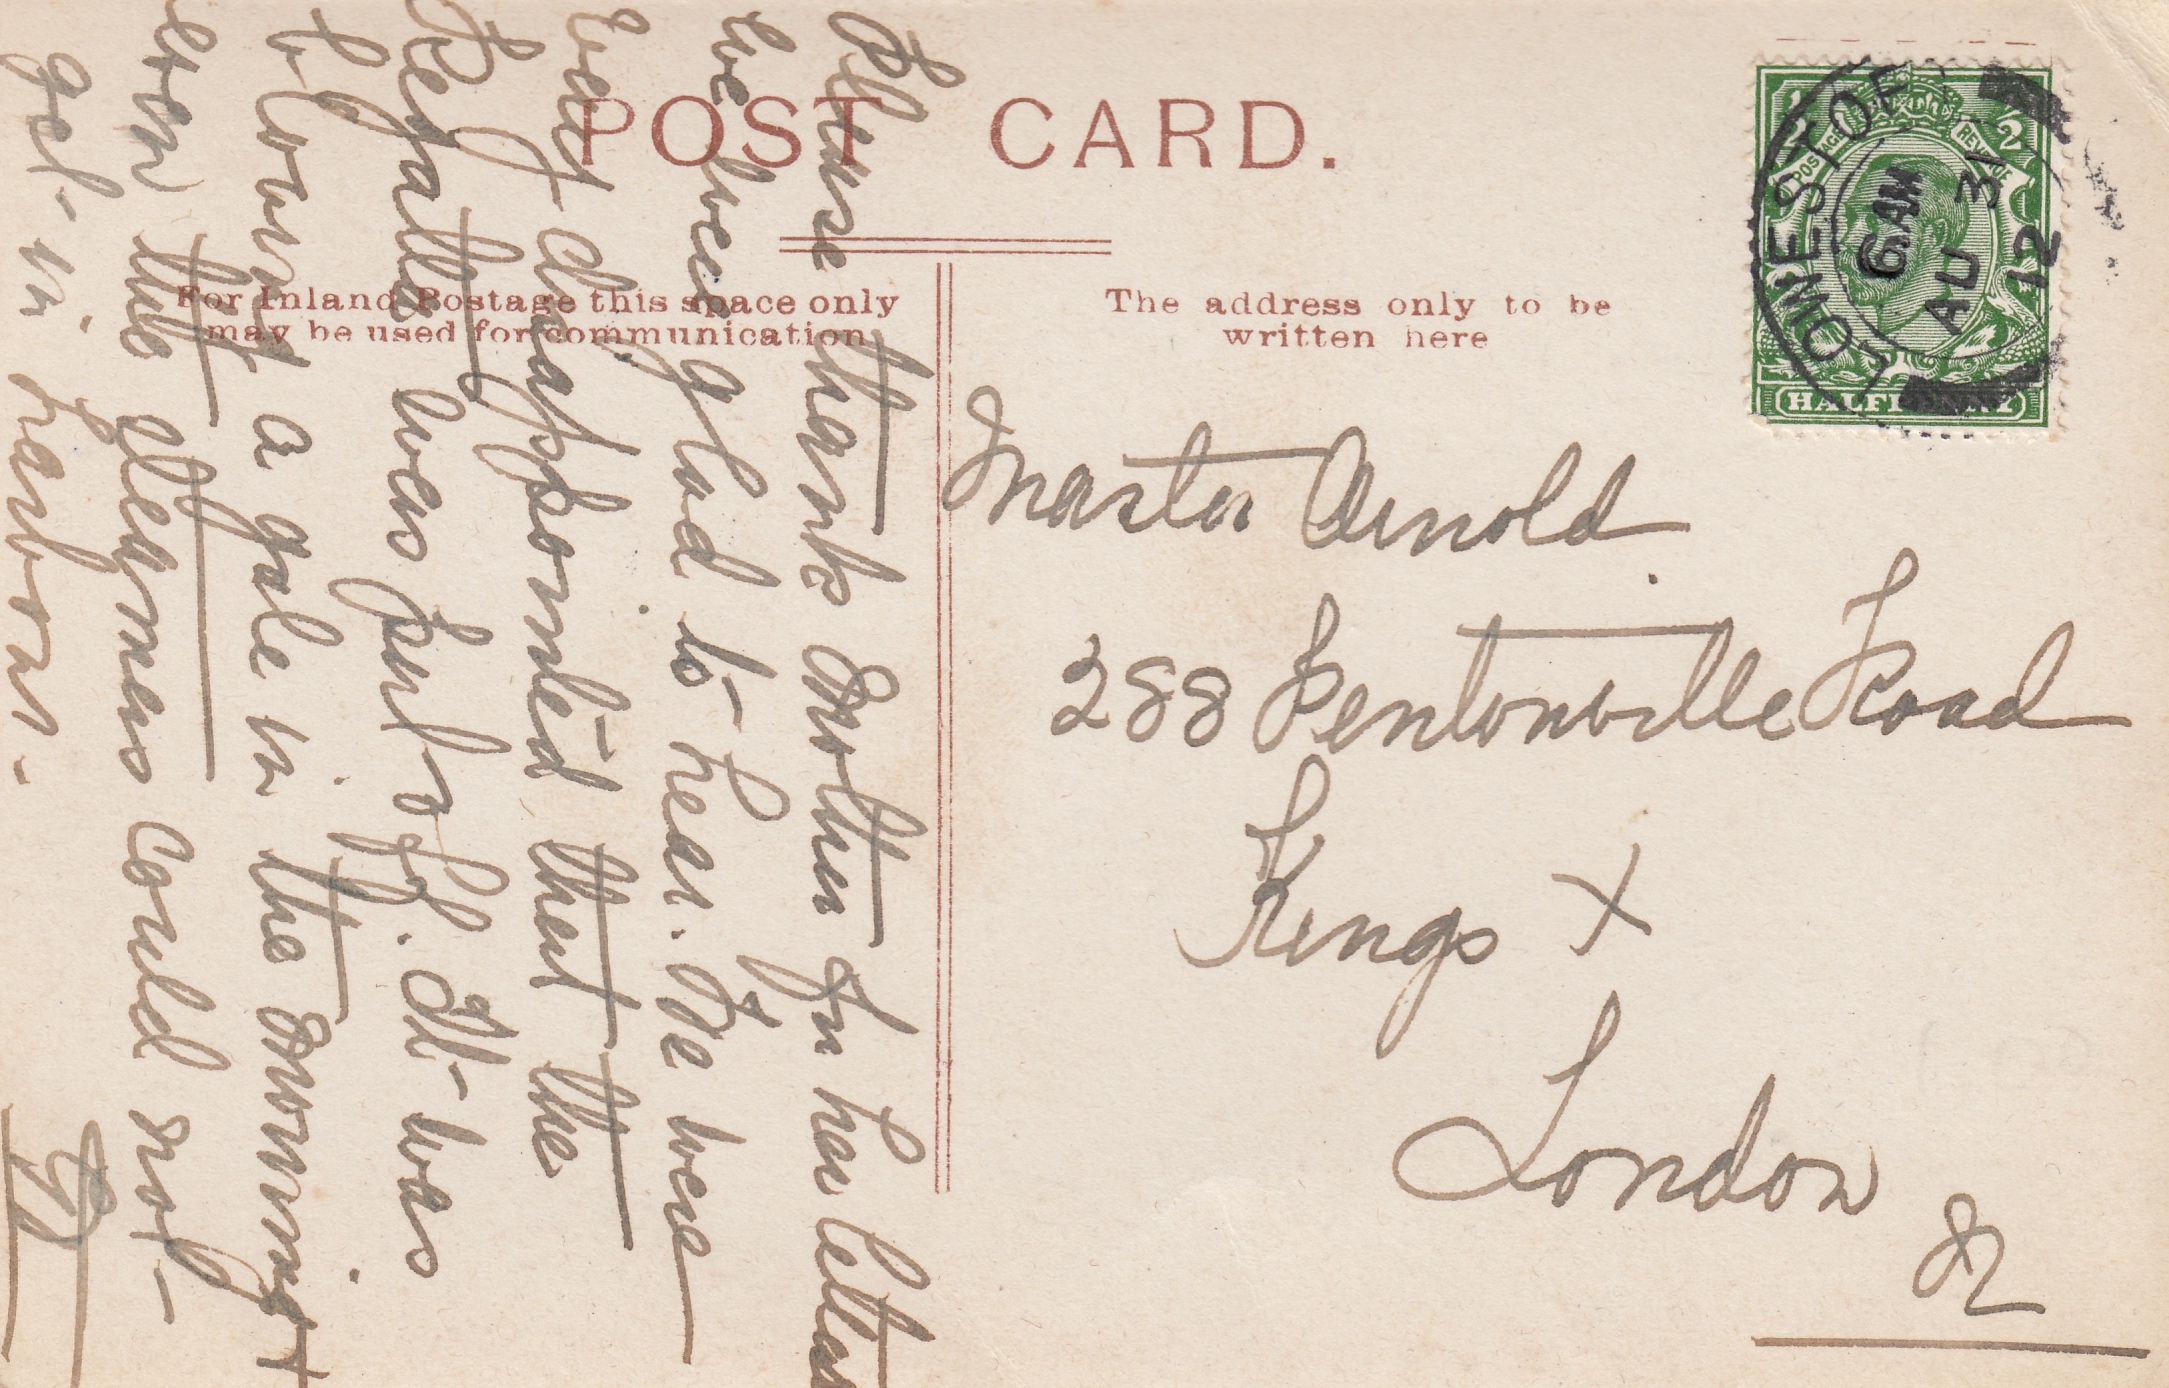 POST CARD.
For Inland Postage this space only
may be used for communication
The address only to be
written here
LOWESTOFT
6 AM
AU 31
12
POSTAGE REVENUE
HALFPENNY
Master Arnold
288 Pentonville Road
Kings X
London
N
Please thank Mother for her letter
we were glad to hear. We were
very disappointed that the
Regatta was put off. It was
blowing a gale in the morning &
even the steamers could not
get in harbour.